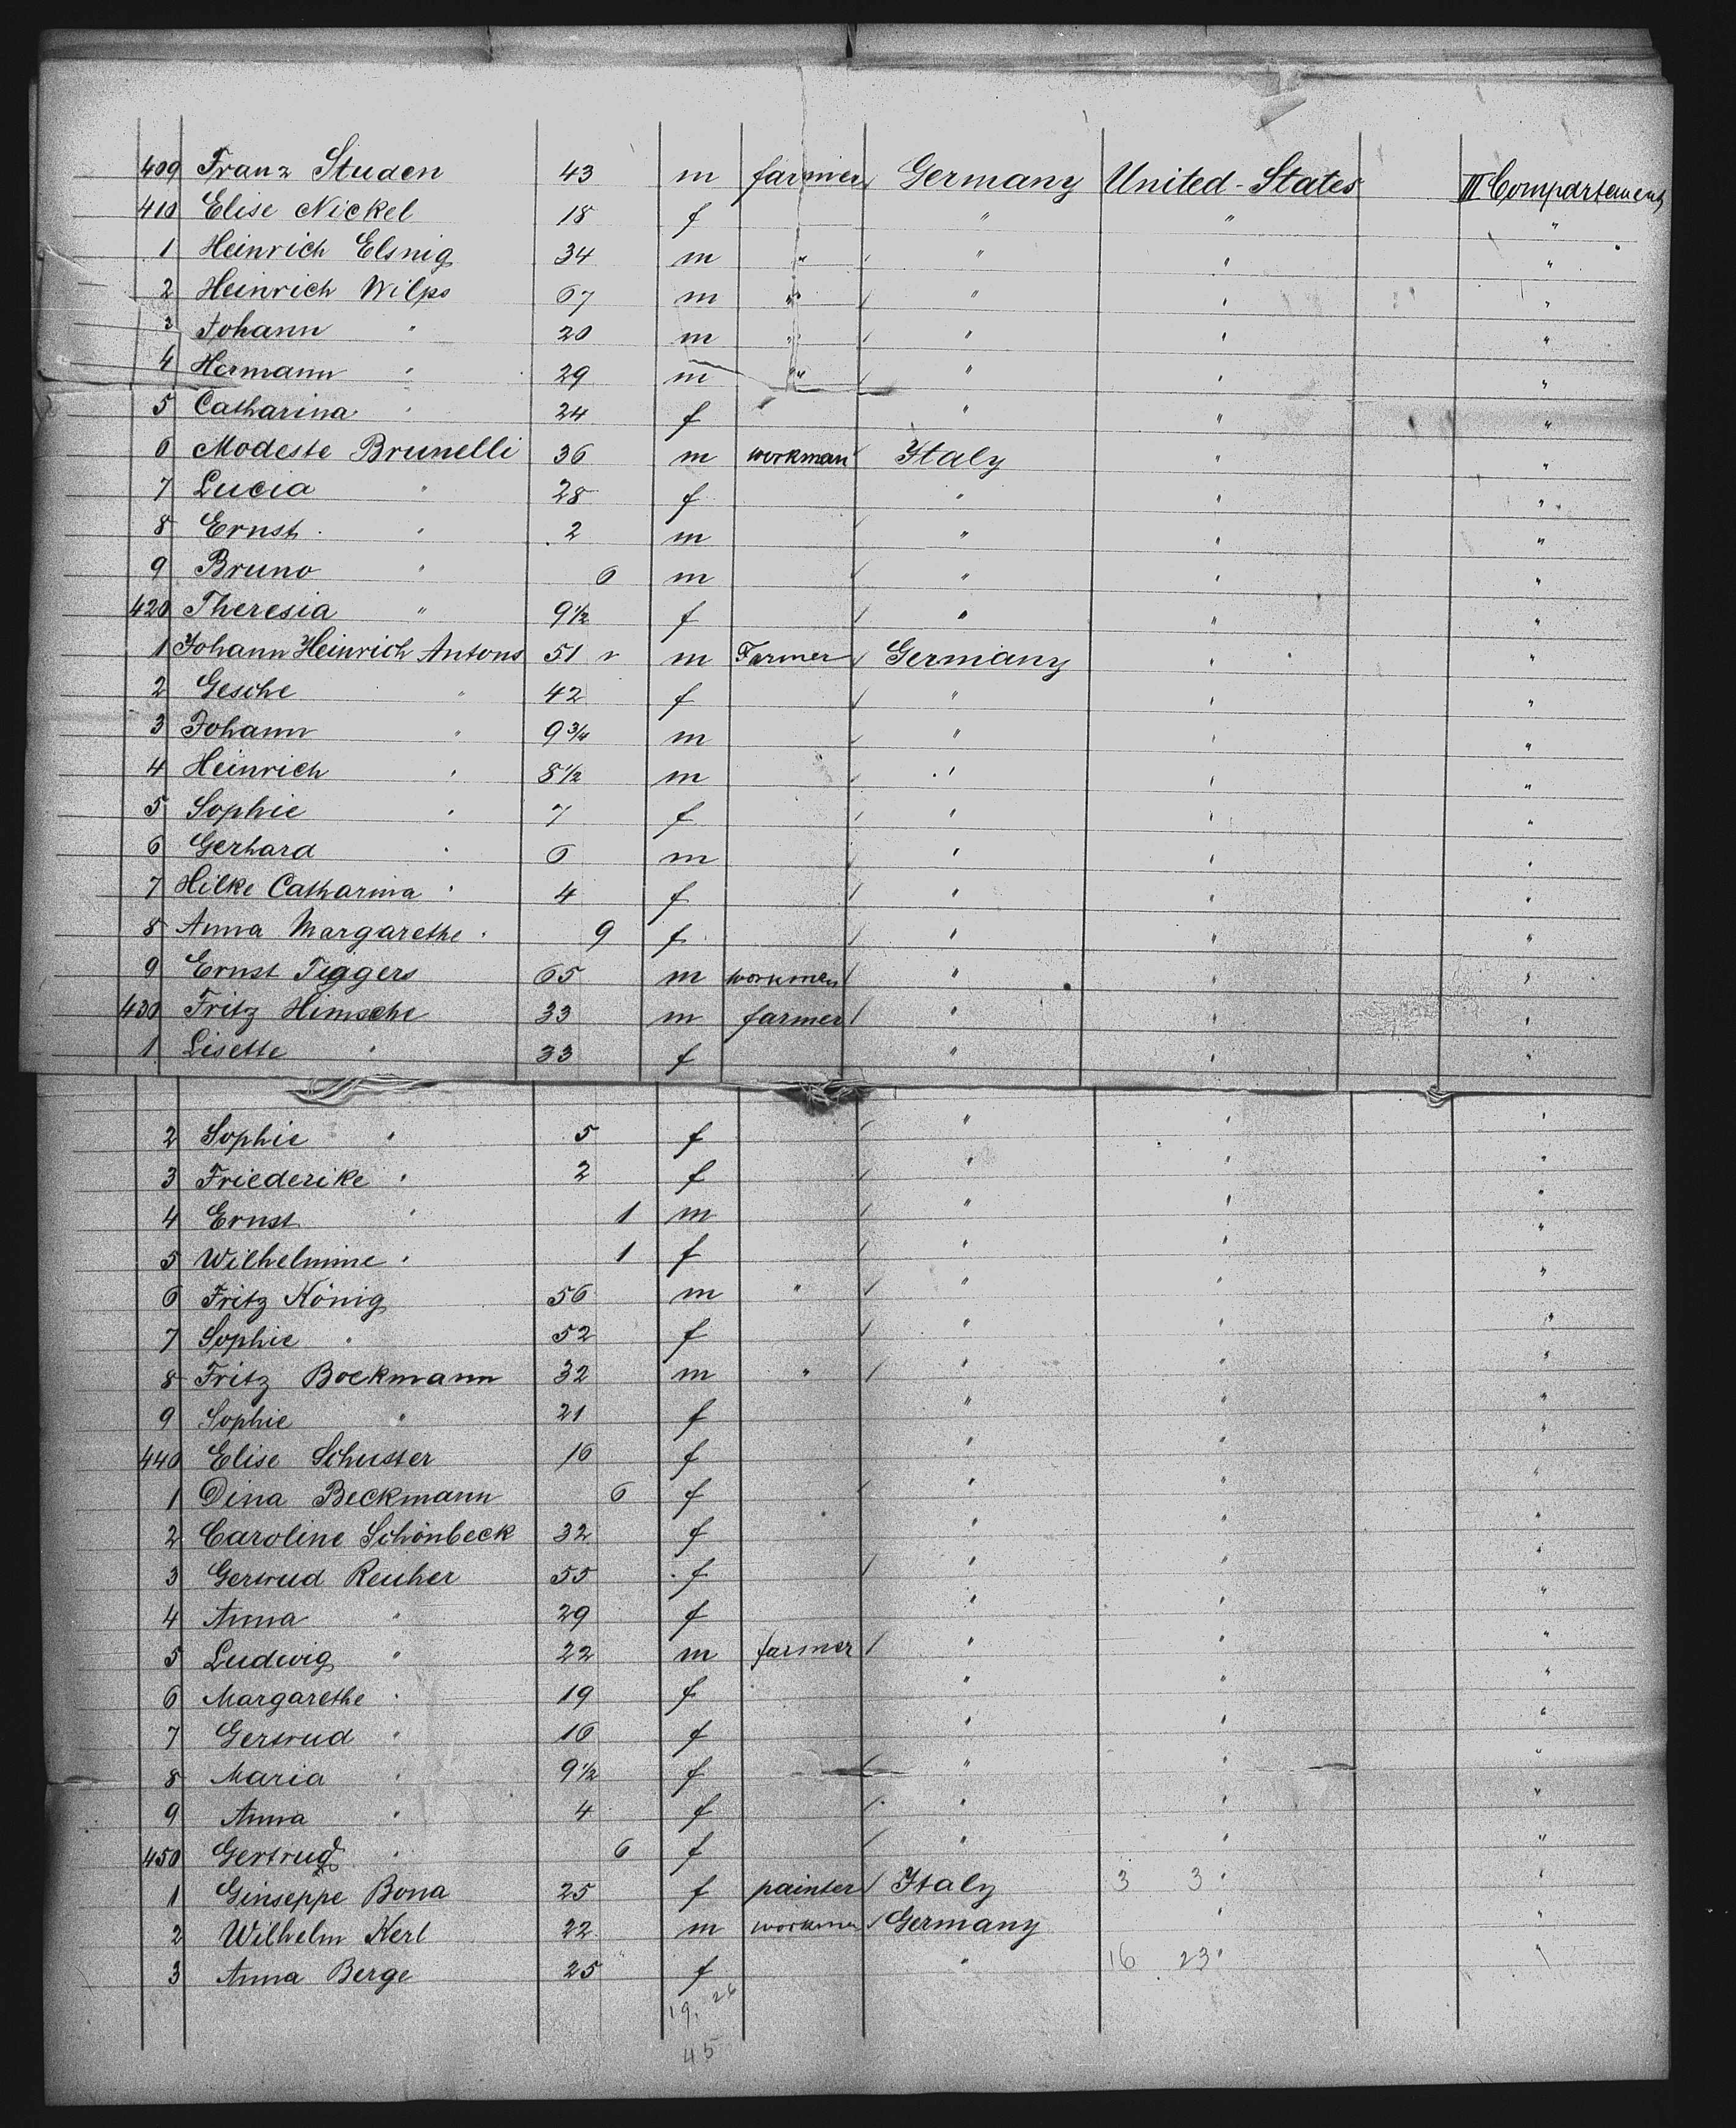 409 Franz Studen 43 m farmer Germany United-States III Compartement
410 Elise Nickel 18 f " " "
1 Heinrich Elsnig 34 m " " " "
2 Heinrich Wilps 67 m " " " "
3 Johann " 20 m " " " "
4 Hermann " 29 m " " " "
5 Catharina " 24 f " " "
6 Modeste Brunelli 36 m workman Italy " "
7 Lucia " 28 f " " "
8 Ernst " 2 m " " "
9 Bruno " 6 m " " "
420 Theresia " 9½ f " " "
1 Johann Heinrich Antons 51 m Farmer Germany " "
2 Gesche " 42 f " " "
3 Johann " 9¾ m " " "
4 Heinrich " 8½ m " " "
5 Sophie " 7 f " " "
6 Gerhard " 6 m " " "
7 Hilke Catharina " 4 f " " "
8 Anna Margarethe " 9 f " " "
9 Ernst Tiggers 65 m workman " " "
430 Fritz Himsche 33 m farmer " " "
1 Lisette " 33 f " " "
2 Sophie " 5 f " " "
3 Friederike " 2 f " " "
4 Ernst " 1 m " " "
5 Wilhelmine " 1 f " " "
6 Fritz König 56 m " " " "
7 Sophie " 52 f " " "
8 Fritz Boekmann 32 m " " " "
9 Sophie " 21 f " " "
440 Elise Schuster 16 f " " "
1 Dina Beckmann 6 f " " "
2 Caroline Schönbeck 32 f " " "
3 Gertrud Reuher 55 f " " "
4 Anna " 29 f " " "
5 Ludwig " 22 m farmer " " "
6 Margarethe " 19 f " " "
7 Gertrud " 16 f " " "
8 Maria " 9½ f " " "
9 Anna " 4 f " " "
450 Gertrud " 6 f " " "
1 Ginseppe Bona 25 f painter Italy 3 3 " "
2 Wilhelm Kerl 22 m workman Germany " "
3 Anna Berge 25 f " 16 23 " "
19. 26
45